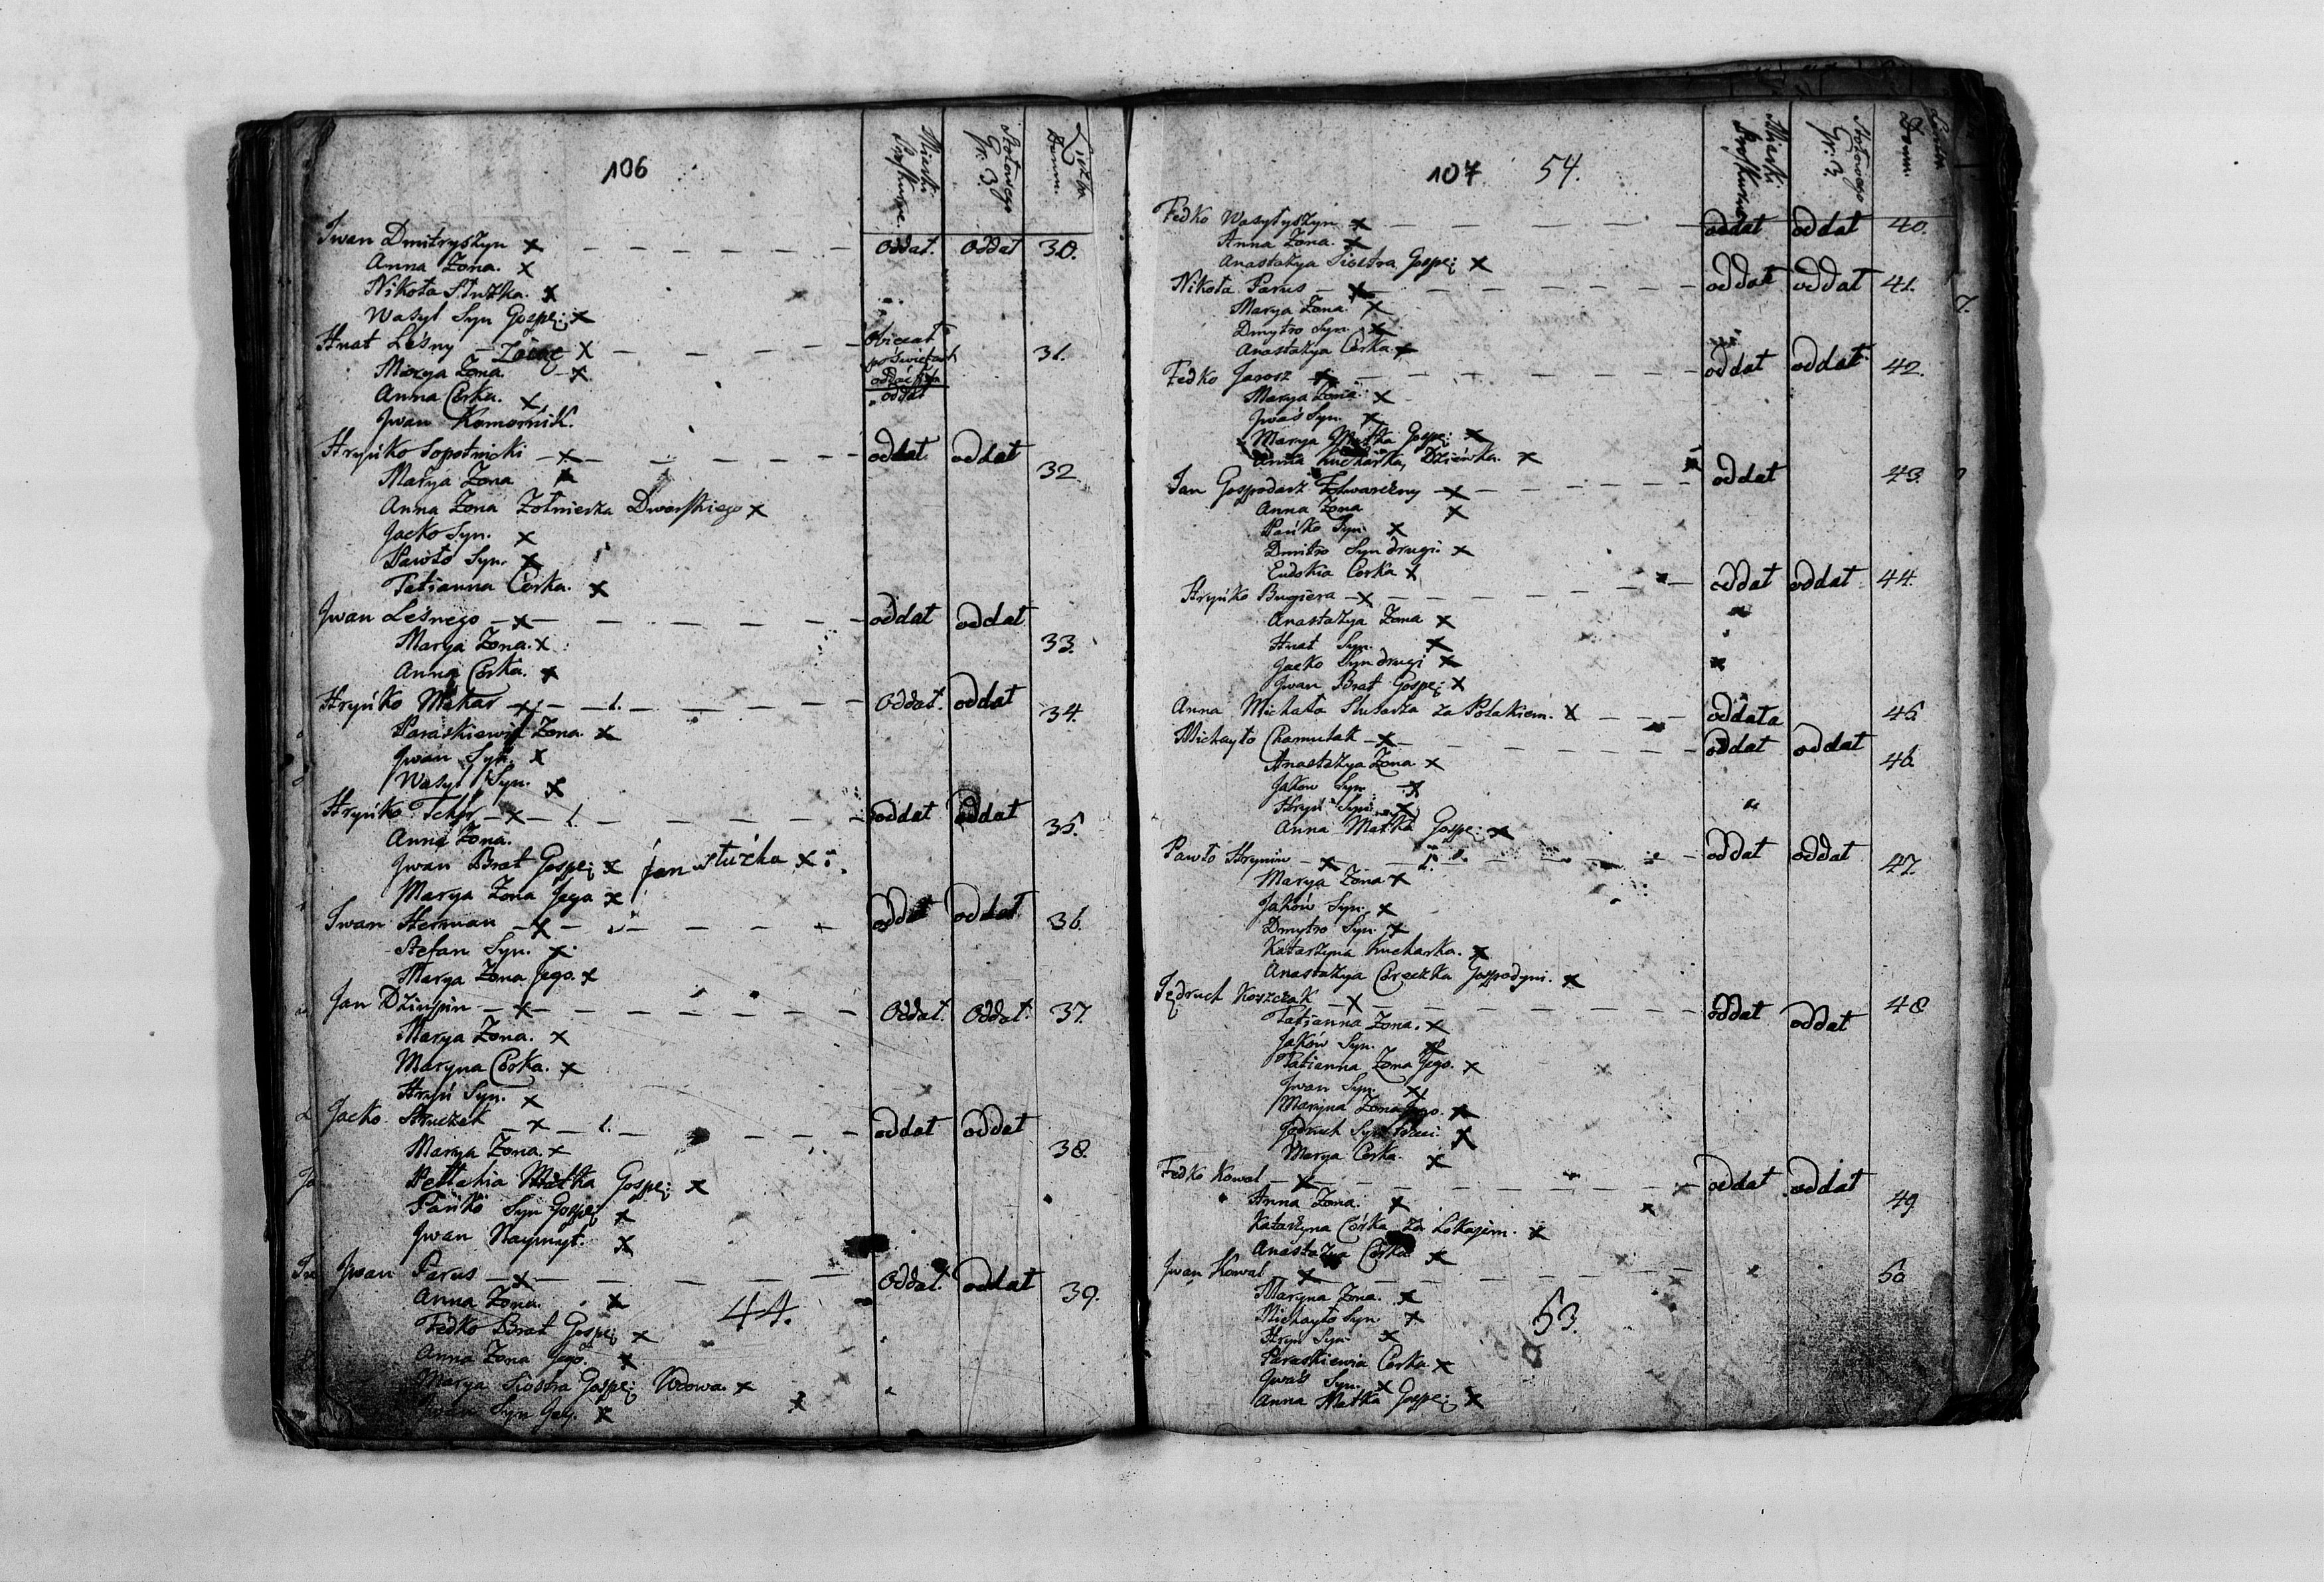 106
Miarki Proskurne
Stołowego Gr: 3.
Liczba Domu.
Iwan Dmitryszyn x — — — — — — oddał. oddał 30.
Anna Zona. x
Nikoła Służka. x
Wasyl Syn Gospo: x
Hnat Leśny — x — — — — Obiecał 31.
po świętach
Marya Zona. — x
oddał
Anna Corka. x
Jwan Komornik.
Hryńko Sopotnicki — x — — — — — oddał. oddał 32
Marya Zona x
Anna Zona Żołnierza Dworskiego x
Jacko Syn. x
Pawło Syn. x
Tatianna Corka. x
Jwan Leśnego — x — — — — — oddał oddał 33.
Marya Zona. x
Anna Corka. x
Hryńko Makar — x — — 1. — — — — oddał. oddał 34.
Paraskiewia Zona. x
Jwan Syn. x
Wasyl Syn. x
Hryńko Tchor — x — 1. — — — — oddał oddał 35.
Anna Zona.
Jwan Brat Gospo: x Jan służka x
Marya Zona Jego x
Iwan Herman — x — — — — — oddał oddał 36.
Stefan Syn. x
Marya Zona Jego. x
Jan — x — — — — — — oddał. oddał 37.
Marya Zona. x
Maryna Corka. x
Hryń Syn. x
Jacko Hruczek — x — 1. — — — — oddał oddał 38.
Marya Zona. x
Pellahia Matka Gospo: x
Pańko Syn Gospo: x
Jwan Naymyt. x
Jwan Parus — x — — — — — oddał. oddał 39.
Anna Zona. x
44.
Fedko Brat Gospo: x
Anna Zona Jego. x
Marya Siostra Gospo: Wdowa. x
Jwan Syn Jey. x
107 54.
Miarki Proskurne
Stołowego Gr: 3.
Liczba Domu.
Fedko Wasyłyszyn x — — — — — oddał oddał 40.
Anna Zona. x
Anastazya Siostra Gospo: x
Nikoła Parus — x — — — — — oddał oddał 41.
Marya Zona. x
Dmytro Syn. x
Anastazya Corka. x
Fedko Jarosz x — — — — — oddał oddał 42.
Marya Zona. x
Jwaś Syn. x
Marya Matka Gospo: x
Anna Kucharka, Dziewka. x
Jan Gospodarz Folwarczny — x — — — — — oddał 43.
Anna Zona x
Pańko Syn x
Dmitro Syn drugi. x
Eudokia Corka x
Hryńko Bugiera — x — — — — — oddał oddał 44.
Anastazya Zona x
Hnat Syn. x
Jacko Syn drugi x
Jwan Brat Gospo: x
Anna Michała Slusarza za Polakiem. x — — — oddała 45.
Michayło Chamulak — x — — — — — oddał oddał 46.
Anastazya Zona x
Jakow Syn x
Hryń Syn x
Anna Matka Gospo: x
Pawło Hrynin — x — — — — — oddał oddał 47.
Marya Zona x
Jaków Syn. x
Dmytro Syn. x
Katarzyna Kucharka. x
Anastazya Coreczka Gospodyni. x
Jędruch Koszczak — x — — — — — oddał oddał 48
Tatianna Zona. x
Jaków Syn. x
Tatianna Zona Jego. x
Jwan Syn. x
Maryna Zona Jego. x
Jędruch Syn x
Marya Corka. x
Fedko Kowal — x — — — — — oddał oddał 49
Anna Zona. x
Katarzyna Córka za Lokajem. x
Anastazya Corka x
Jwan Kowal x — — — — — 50
Maryna Zona. x
Michayło Syn x
53.
Hryń Syn x
Paraskiewia Corka x
Jwaś Syn. x
Anna Matka Gospo: x
7.